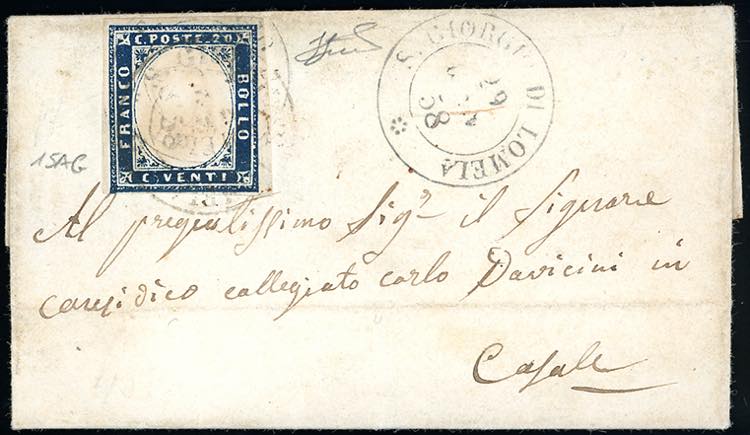 C. POSTE. 20
FRANCO
BOLLO
C. VENTI
S. GIORGIO DI LOMELA
1SAG
Al pregiatissimo Sigr il Signore
causidico collegiato carlo Davicini in
Casale